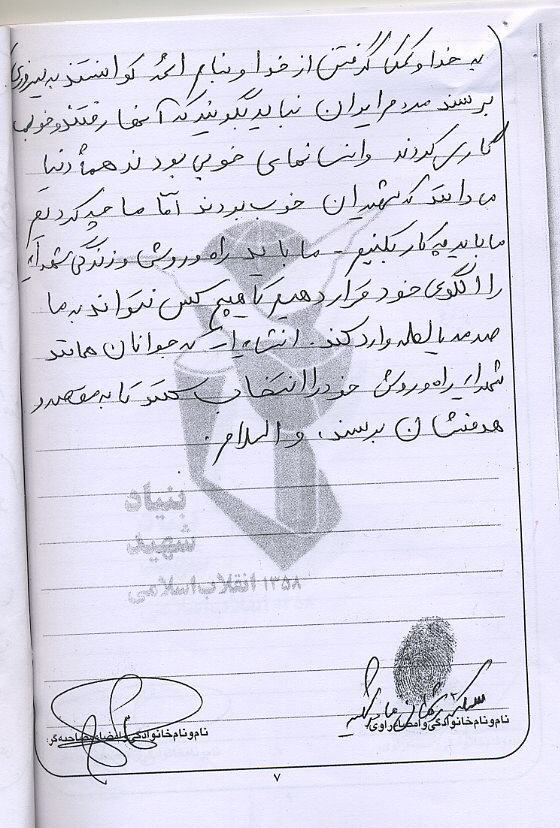 به خدا و کمک گرفتن از خدا و بنام ائمه توانستند به پیروزی
برسند مردم ایران نباید بگویند که آنها رفتند و خوب
کاری کردند و انسانهای خوبی بودند همهٔ دنیا
می دانند که شهیدان خوب بودند اما ما چه کردیم
ما باید چه کار بکنیم - ما باید راه و روش و زندگی شهدا
را الگوی خود قرار دهیم تا هیچ کس نتواند به ما
صدمه یا لطمه وارد کند. انشاءا... که جوانان همانند
شهدا راه و روش خود را انتخاب کنند تا به مقصد و
هدفشان برسند. والسلام.
بنیاد
شهید
انقلاب اسلامی ۱۳۵۸
نام و نام خانوادگی و امضاء راوی:
نام و نام خانوادگی و امضاء مصاحبه گر:
۷